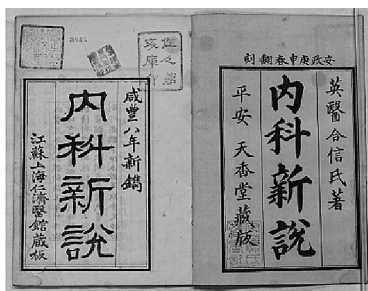 安政庚申春翻刻
英醫合信氏著
內科新說
平安 天香堂藏版
咸豐八年新鐫
內科新說
江蘇上海仁濟醫館藏板